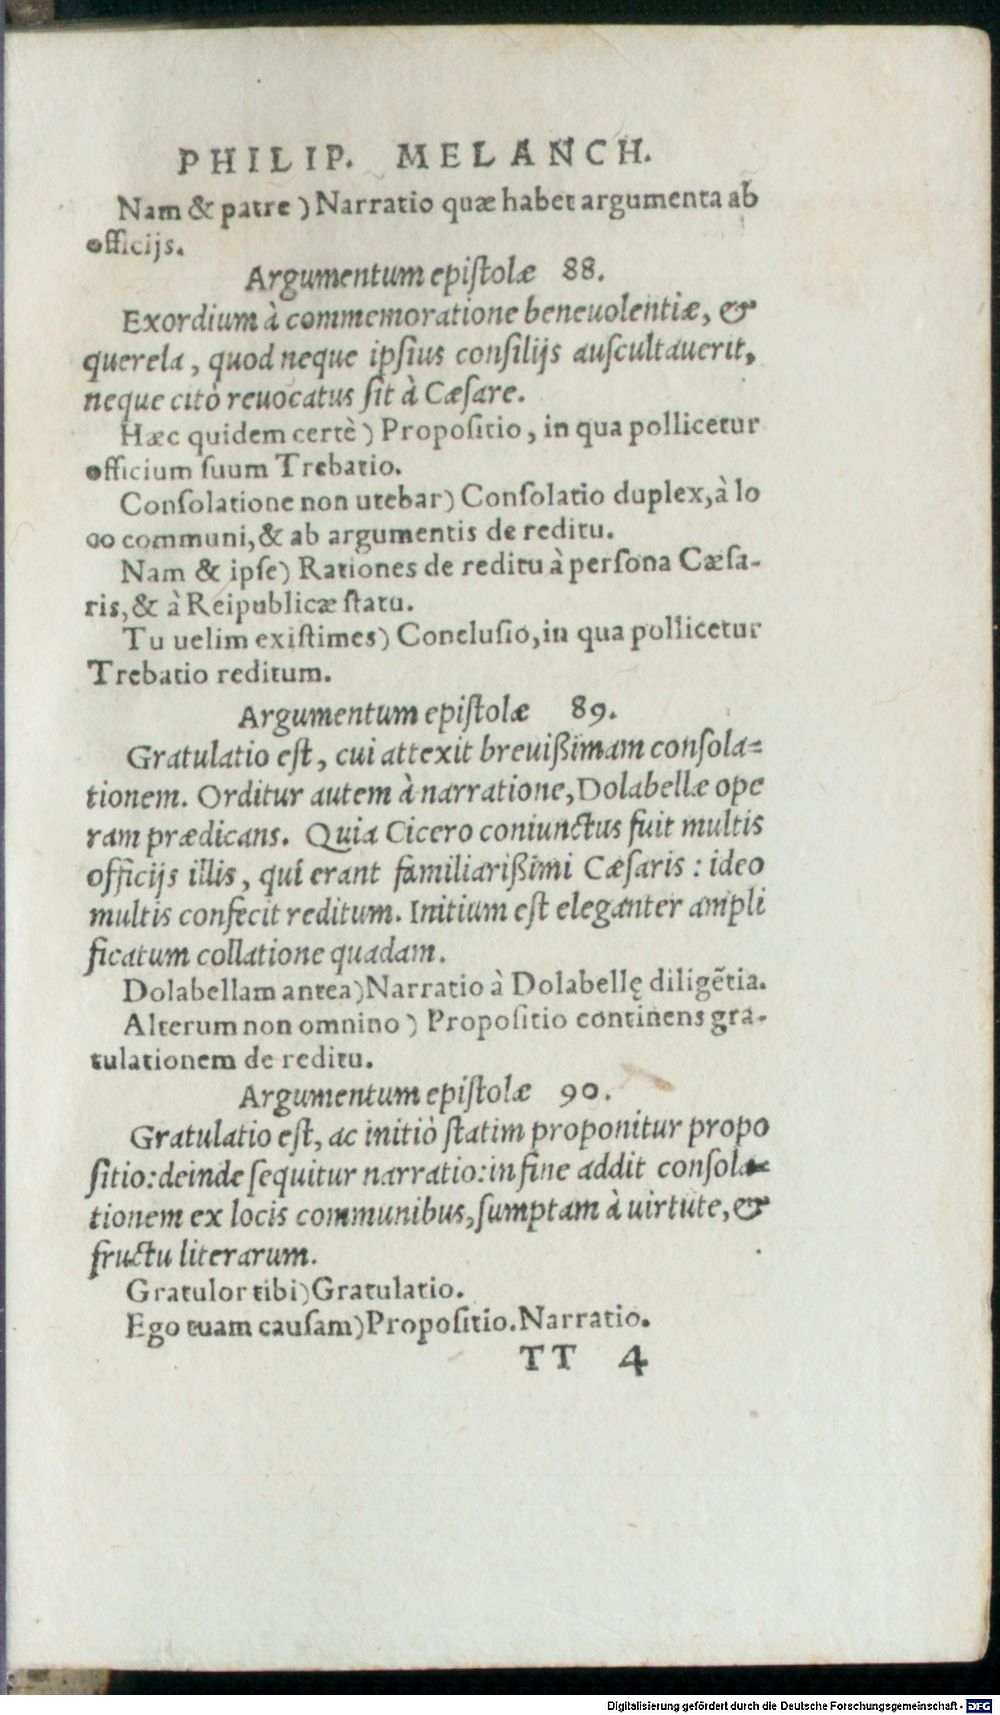 PHILIP. MELANCH.
Nam & patre ) Narratio quæ habet argumenta ab
officijs.
Argumentum epiſtolæ 88.
Exordium à commemoratione beneuolentiæ, &
querela, quod neque ipſius conſilijs auſcultauerit,
neque citò reuocatus ſit à Cæſare.
Hæc quidem certè) Propoſitio, in qua pollicetur
officium ſuum Trebatio.
Conſolatione non utebar) Conſolatio duplex, à lo
co communi, & ab argumentis de reditu.
Nam & ipſe) Rationes de reditu à perſona Cæſa-
ris, & à Reipublicæ ſtatu.
Tu uelim exiſtimes) Concluſio, in qua pollicetur
Trebatio reditum.
Argumentum epiſtolæ 89.
Gratulatio eſt, cui attexit breuißimam conſola=
tionem. Orditur autem à narratione, Dolabellæ ope
ram prædicans. Quia Cicero coniunctus fuit multis
officijs illis, qui erant familiarißimi Cæſaris : ideo
multis confecit reditum. Initium eſt eleganter ampli
ficatum collatione quadam.
Dolabellam antea) Narratio à Dolabellę diligẽtia.
Alterum non omnino ) Propoſitio continens gra-
tulationem de reditu.
Argumentum epiſtolæ 90.
Gratulatio eſt, ac initiò ſtatim proponitur propo
ſitio: deinde ſequitur narratio: in fine addit conſola=
tionem ex locis communibus, ſumptam à uirtute, &
fructu literarum.
Gratulor tibi) Gratulatio.
Ego tuam cauſam) Propoſitio. Narratio.
TT 4
Digitalisierung gefördert durch die Deutsche Forschungsgemeinschaft - DFG